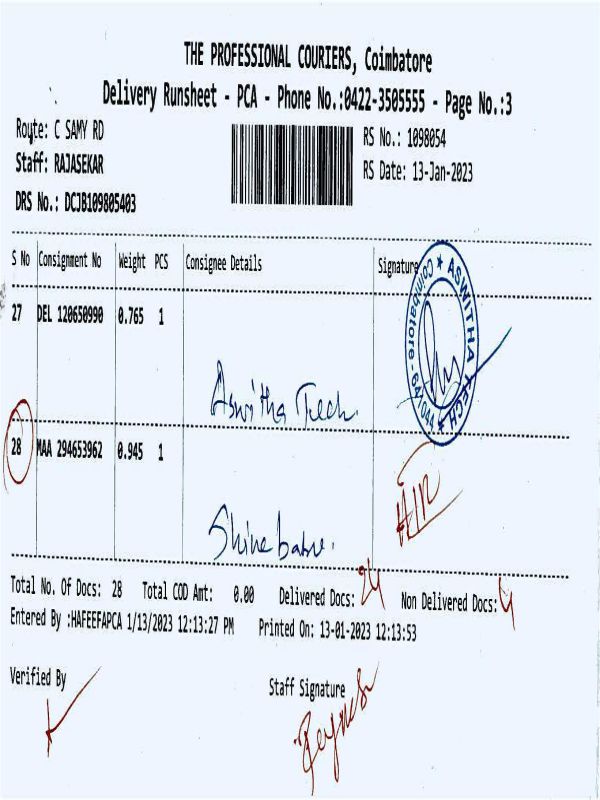 THE PROFESSIONAL COURIERS, Coimbatore
Delivery Runsheet - PCA - Phone No.:0422-3505555 - Page No.:3
Route: C SAMY RD
RS No.: 1098054
Staff: RAJASEKAR
RS Date: 13-Jan-2023
DRS No.: DCJB109805403
S No Consignment No Weight PCS Consignee Details Signature
27 DEL 120650990 0.765 1
ASWITHA TECH
Coimbatore - 641044
Aswitha Tech.
28 MAA 294653962 0.945 1
Shine babu.
Total No. Of Docs: 28 Total COD Amt: 0.00 Delivered Docs: 24 Non Delivered Docs: 4
Entered By :HAFEEFAPCA 1/13/2023 12:13:27 PM Printed On: 13-01-2023 12:13:53
Verified By Staff Signature